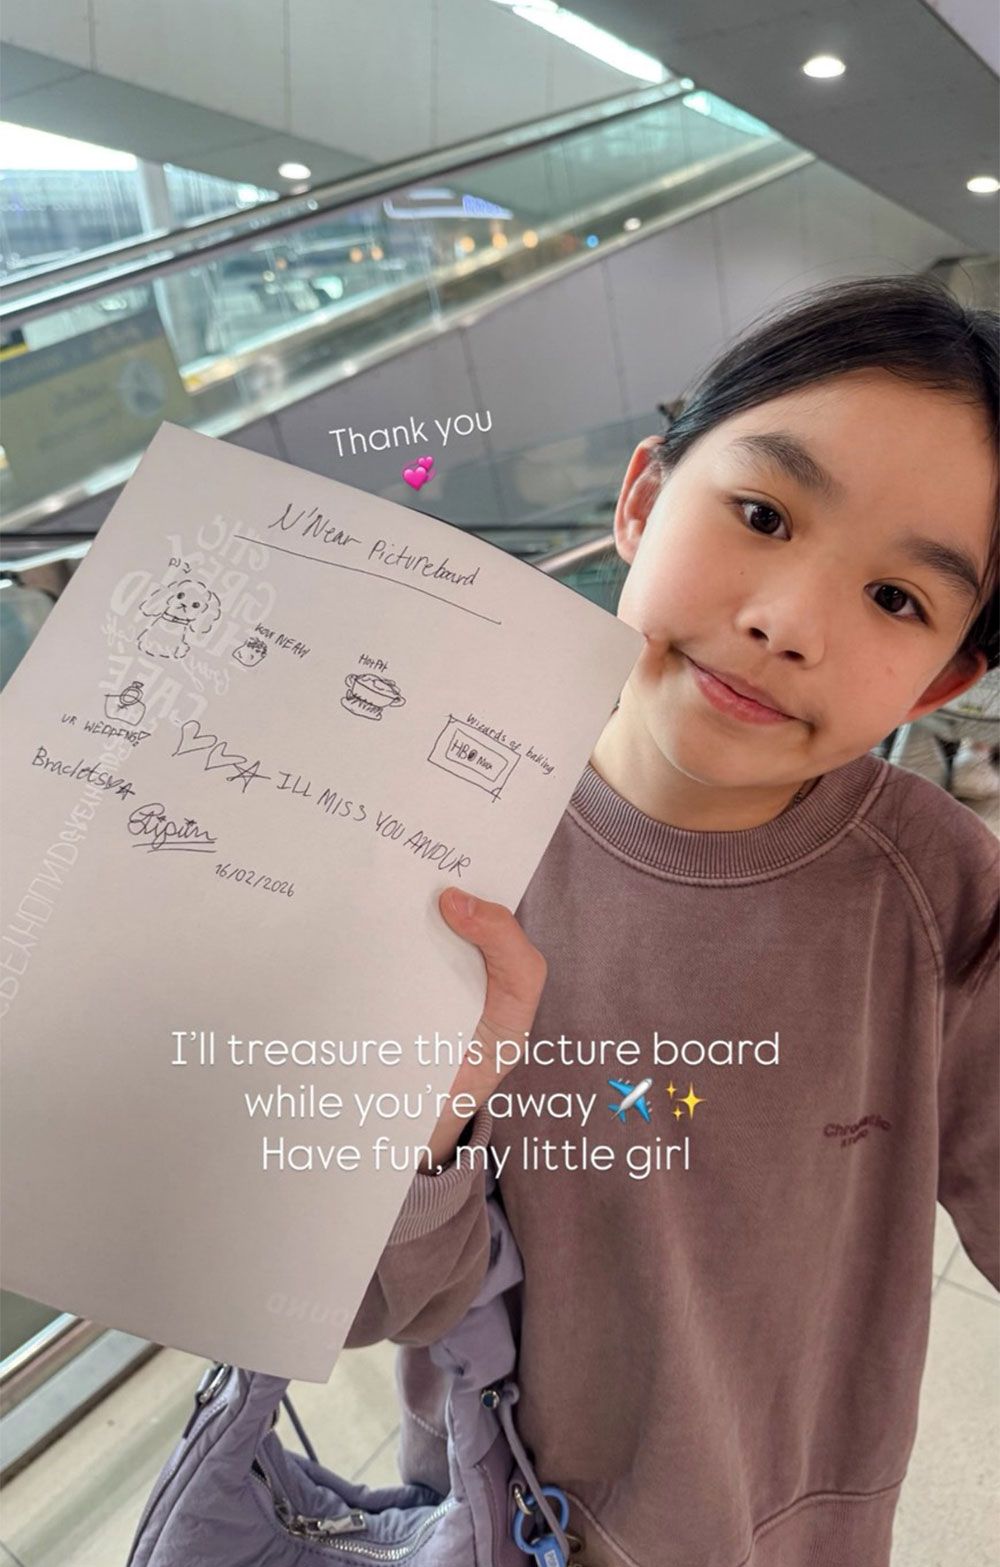 Thank you
💕
N'Near Pictureboard
KOW NEAW
HotPot
Wizards of baking
HBO Max
UR WEDDING!
ILL MISS YOU ANDUR
Braclets
16/02/2026
I'll treasure this picture board
while you're away ✈️ ✨
Have fun, my little girl